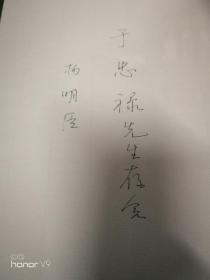 于忠禄先生存念
杨明臣
honor V9